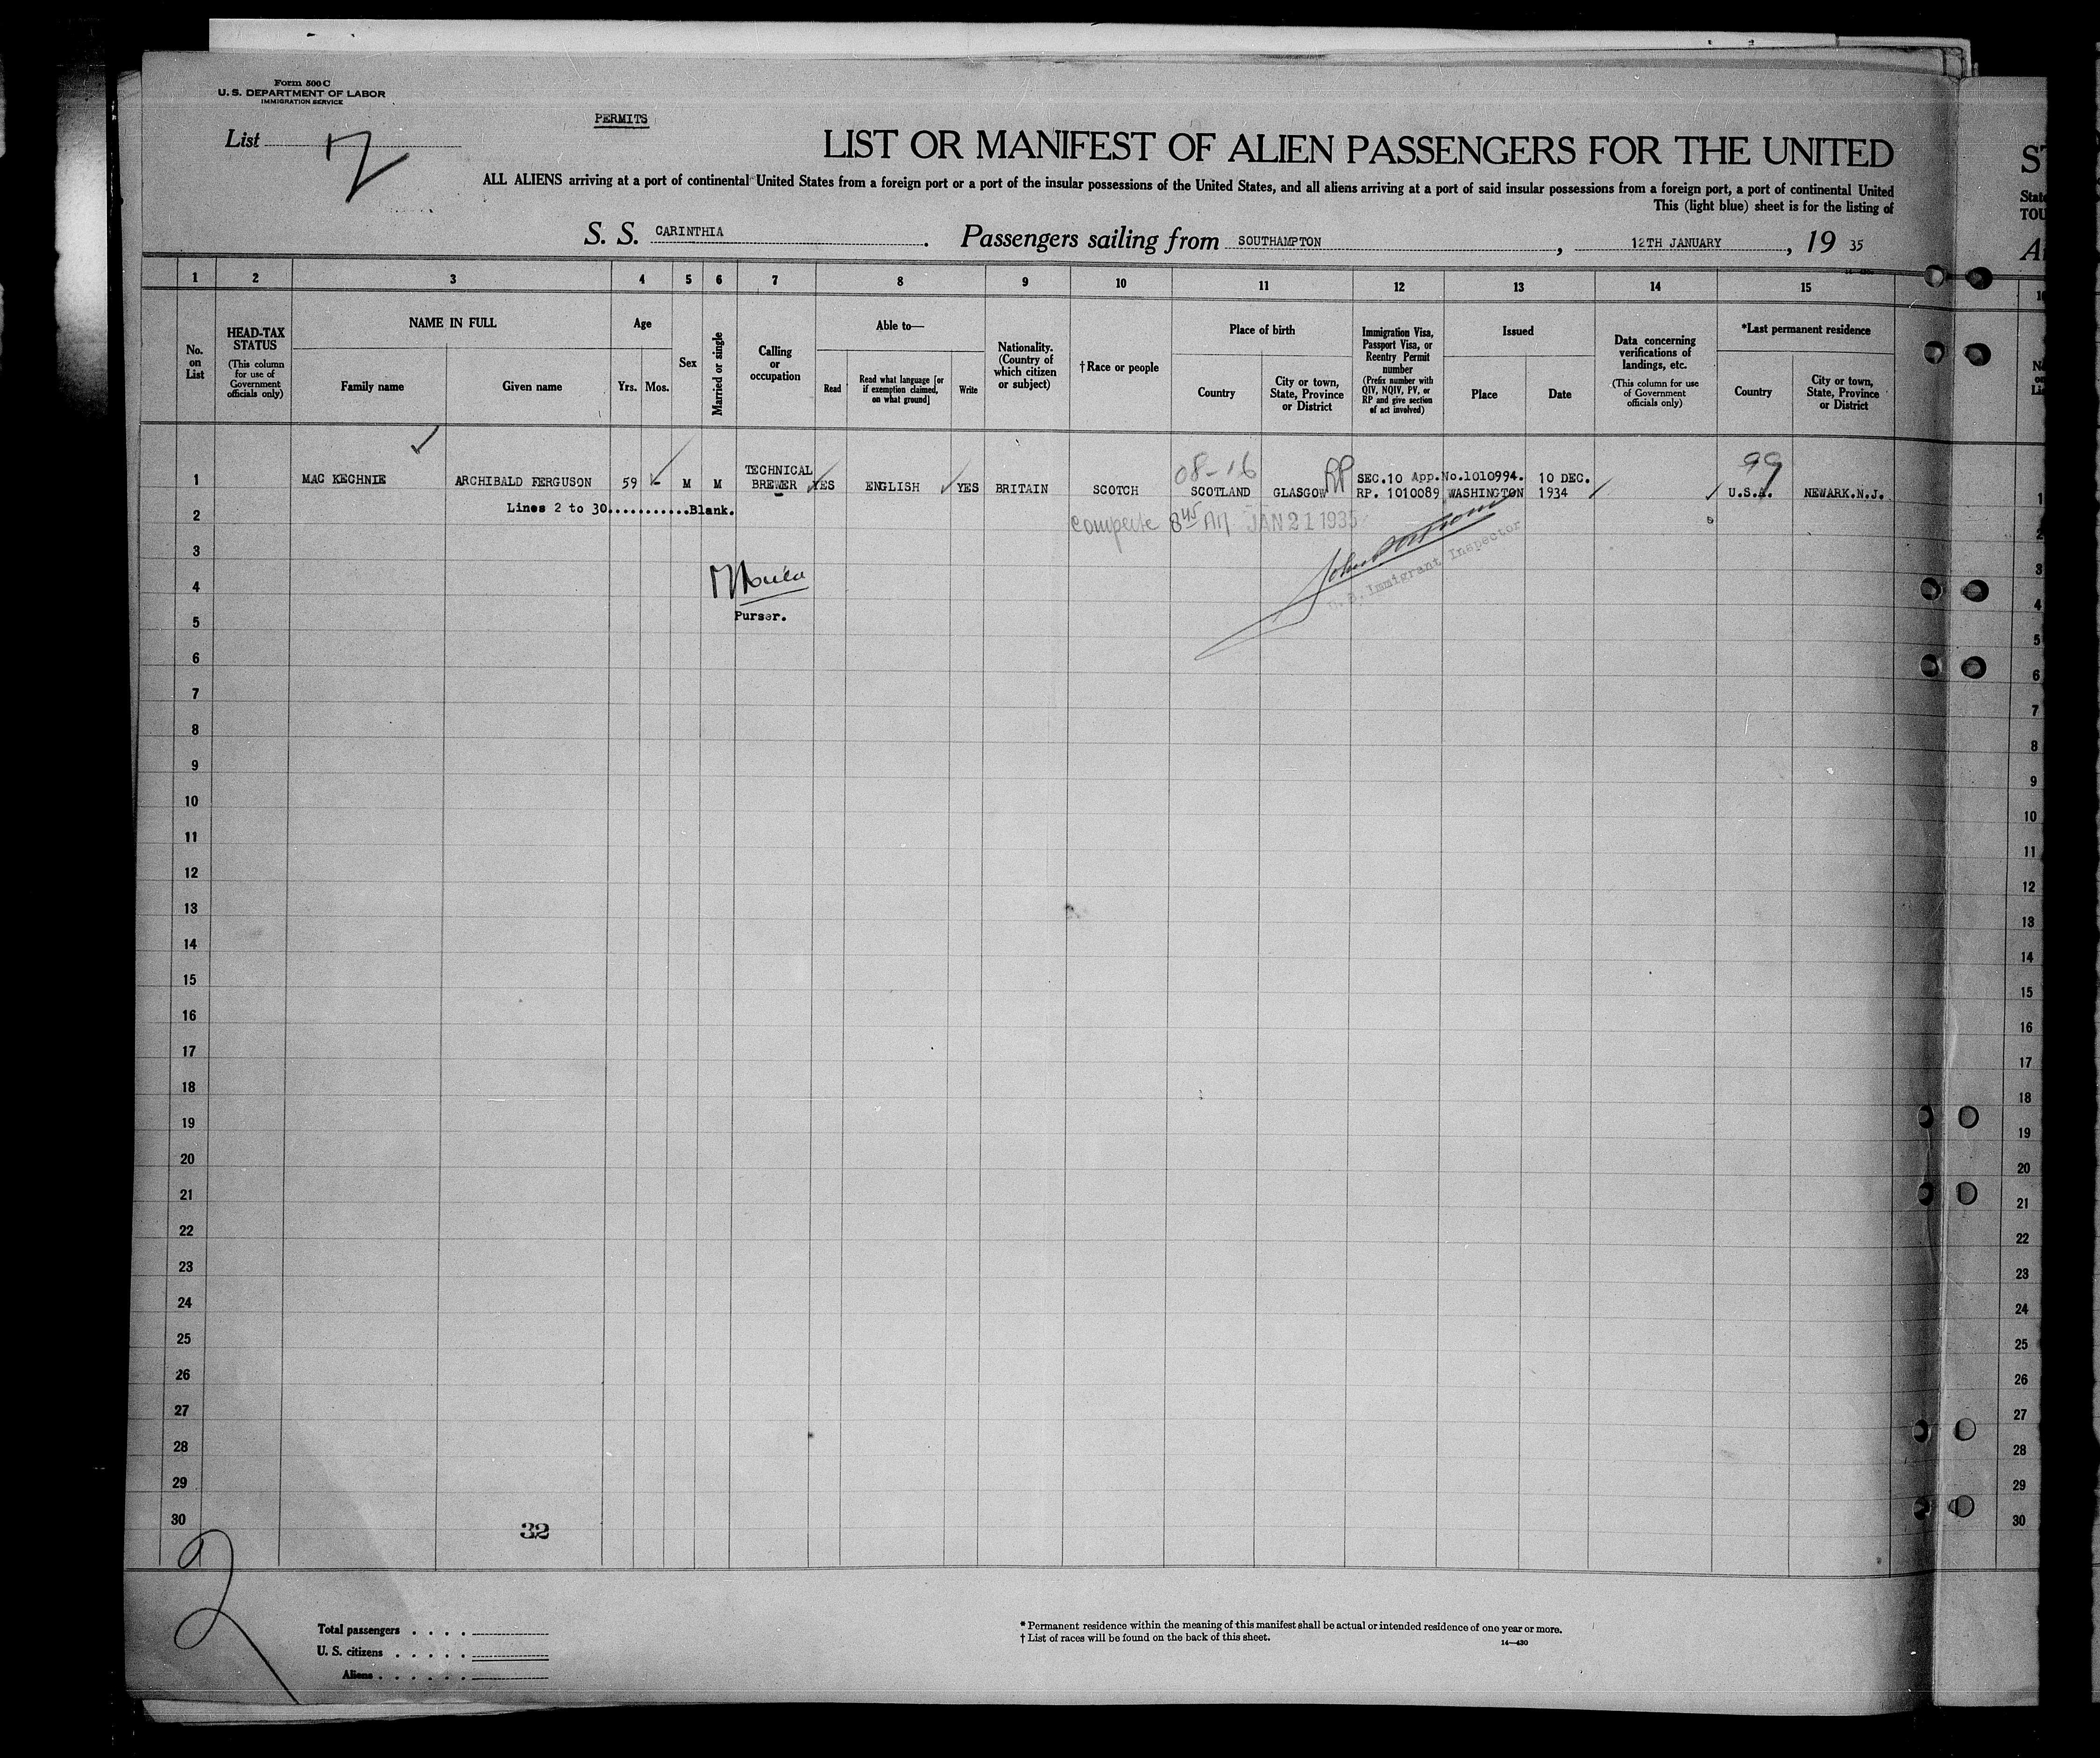 Form 500 C
U. S. DEPARTMENT OF LABOR
IMMIGRATION SERVICE
PERMITS
List 7
LIST OR MANIFEST OF ALIEN PASSENGERS FOR THE UNITED
ALL ALIENS arriving at a port of continental United States from a foreign port or a port of the insular possessions of the United States, and all aliens arriving at a port of said insular possessions from a foreign port, a port of continental United
This (light blue) sheet is for the listing of
S. S. CARINTHIA. Passengers sailing from SOUTHAMPTON, 12TH JANUARY, 19 35
1 2 3 4 5 6 7 8 9 10 11 12 13 14 15
No. on List
HEAD-TAX STATUS
(This column for use of Government officials only)
NAME IN FULL
Family name
Given name
Age
Yrs. Mos.
Sex
Married or single
Calling or occupation
Able to—
Read
Read what language [or if exemption claimed, on what ground]
Write
Nationality. (Country of which citizen or subject)
†Race or people
Place of birth
Country
City or town, State, Province or District
Immigration Visa, Passport Visa, or Reentry Permit number
(Prefix number with QIV, NQIV, PV, or RP and give section of act involved)
Issued
Place
Date
Data concerning verifications of landings, etc.
(This column for use of Government officials only)
*Last permanent residence
Country
City or town, State, Province or District
08-16 RP 99
1 MAC KECHNIE ARCHIBALD FERGUSON 59 - M M TECHNICAL BREWER YES ENGLISH YES BRITAIN SCOTCH SCOTLAND GLASGOW SEC.10 App.No.1010994. RP. 1010089 WASHINGTON 10 DEC. 1934 U.S.A. NEWARK.N.J.
Lines 2 to 30...........Blank.
2
8 45 AM JAN 21 1935
U. S. Immigrant Inspector
3
4
Purser.
5
6
7
8
9
10
11
12
13
14
15
16
17
18
19
20
21
22
23
24
25
26
27
28
29
30
32
Total passengers . . . .
U. S. citizens . . . . .
Aliens . . . . . .
* Permanent residence within the meaning of this manifest shall be actual or intended residence of one year or more.
† List of races will be found on the back of this sheet.
14—430
1
2
3
4
5
6
7
8
9
10
11
12
13
14
15
16
17
18
19
20
21
22
23
24
25
26
27
28
29
30